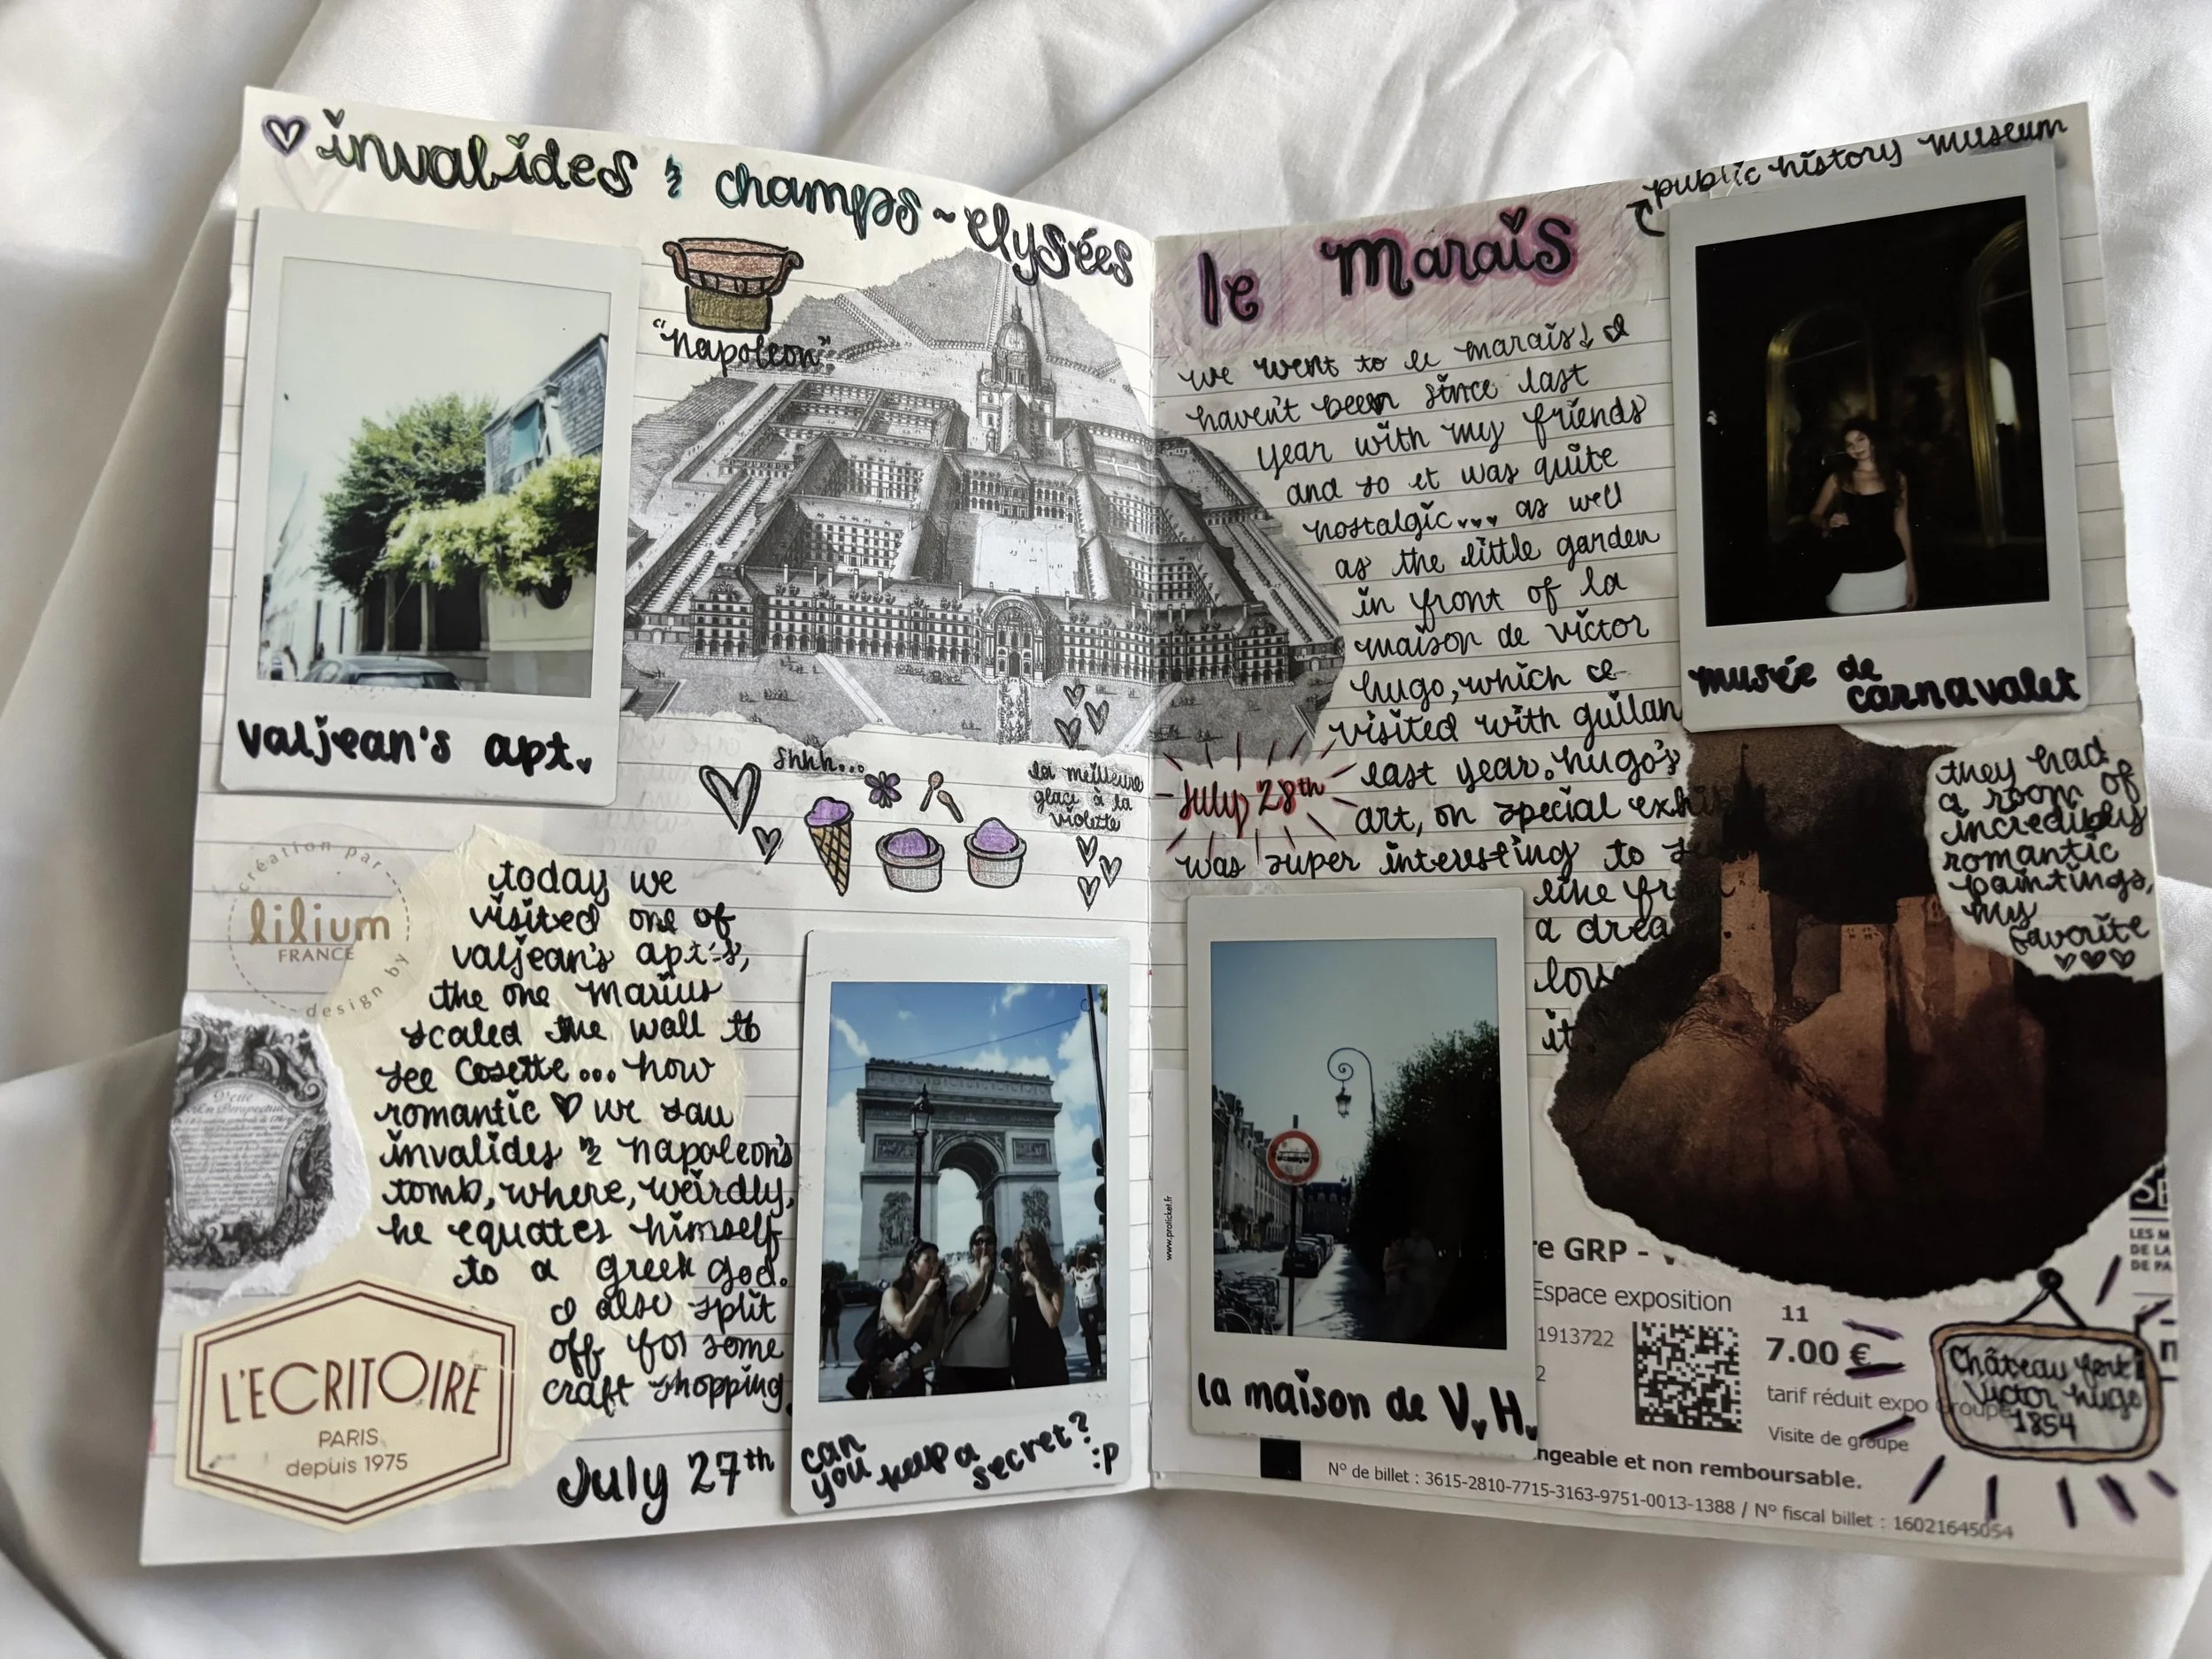 invalides & champs~elysées
"napoleon"
valjean's apt.
shhh...
la meilleure
glace à la
violette
création par
lilium
FRANCE
design by
today we
visited one of
valjean's apt's,
the one Marius
scaled the wall to
see Cosette... how
romantic ♡ we saw
invalides & napoleon's
tomb, where, weirdly,
he equates himself
to a greek god.
I also split
off for some
craft shopping.
L'ECRITOIRE
PARIS
depuis 1975
July 27th
can
you keep a
secret?
:P
le marais
public history museum
we went to le marais! I
haven't been since last
year with my friends
and so it was quite
nostalgic... as well
as the little garden
in front of la
maison de victor
hugo, which I
visited with guilan
last year. hugo's
art, on special exhi
was super interesting to se
like fr
a drea
lov
it
July 28th
musée de
carnavalet
they had
a room of
incredibly
romantic
paintings,
my
favorite
♡♡♡
la maison de V.H.
www.proticket.fr
re GRP -
Espace exposition
1913722
2
11
7.00 €
tarif réduit expo groupe
Visite de groupe
ngeable et non remboursable.
N° de billet : 3615-2810-7715-3163-9751-0013-1388 / N° fiscal billet : 16021645054
LES M
DE LA
DE PA
Château fort
Victor Hugo
1854